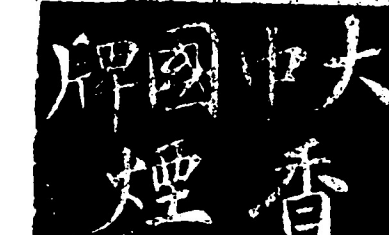 大中國牌
香煙